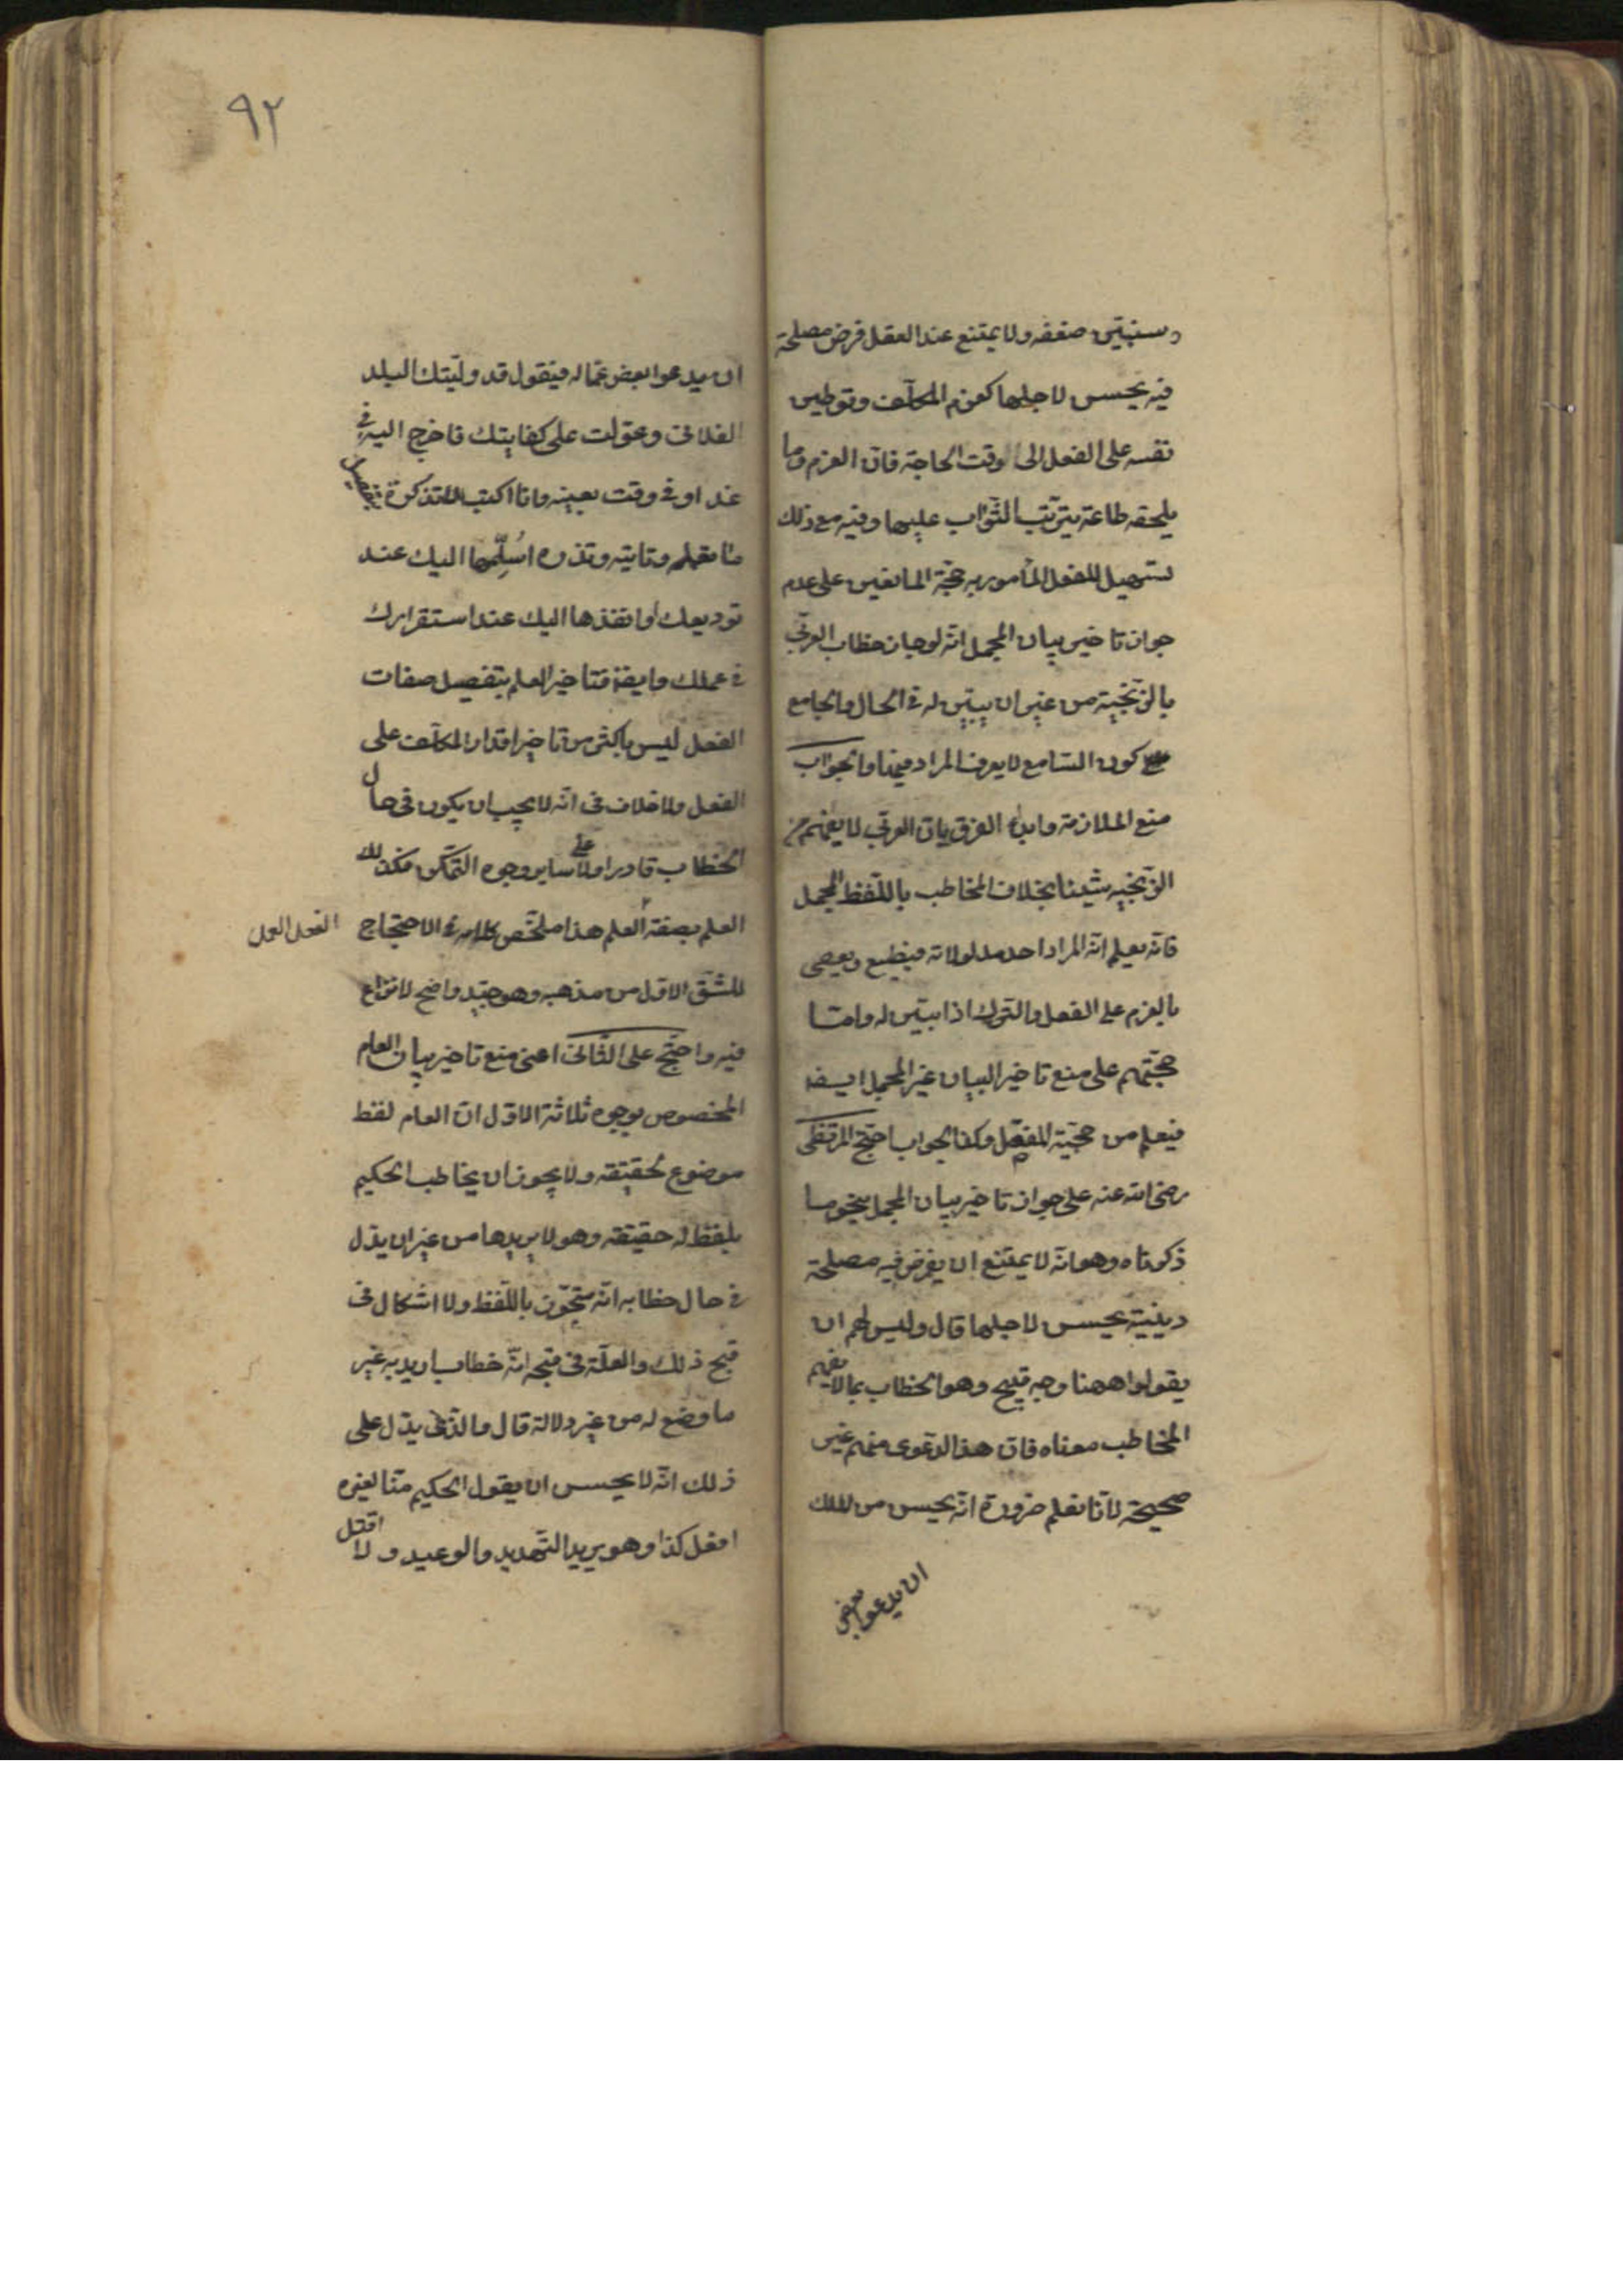 وسنبين ضعفه ولا يمتنع عند العقل فرض مصلحة
فيه يحسن لاجلها كعزم المكلف وتوطين
نفسه على الفعل الى الوقت الحاجة فان العزم وما
يلحقه طاعة يترتب الثواب عليها وفيه مع ذلك
تسهيل للفعل المأمور به حجة المانعين على عدم
جواز تاخير بيان المجمل انه لو جاز خطاب العربي
بالزنجية من غير ان يبين له في الحال والجامع
كون السامع لا يعرف المراد فيهما والجواب
منع الملازمة وابداء الفرق بان العربي لا يفهم من
الزنجيه شيئا بخلاف المخاطب باللفظ المجمل
فانه يعلم انه المراد احد مدلولاته فيطيع ويعصى
بالعزم على الفعل والترك اذا بين له واما
حجتهم على منع تاخير البيان غير المجمل ايضا
فيعلم من حجية المفصل وكذا الجواب احتج المرتضى
رضى الله عنه على جواز تاخير بيان المجمل بنحو ما
ذكرناه وهو انه لا يمتنع ان يفرض فيه مصلحة
دينية يحسن لاجلها قال وليس لهم ان
يقولوا ههنا وجه قبيح وهو الخطاب بما لا يفهم
المخاطب معناه فان هذا الدعوى منهم غير
صحيحة لانا نعلم ضرورة انه يحسن من الملك
ان يدعوا بعض
٩٢
ان يدعوا بعض عماله فيقول قد وليتك البلد
الفلانى وعولت على كفايتك فاخرج اليه في
غد او في وقت بعينه وانا اكتب لك تذكرة بتفصيل
ما تعمله وتاتيه وتذره اسلمها اليك عند
توديعك او انفذها اليك عند استقرارك
في عملك وايضا فتاخير العلم بتفصيل صفات
الفعل ليس باكثر من تاخير اقدار المكلف على
الفعل ولا خلاف في انه لا يجب ان يكون في حال
الخطاب قادرا ولا على ساير وجوه التمكن فكذلك
العلم بصفة العلم هذا ملخص كلامه في الاحتجاج
الفعل العمل
للشق الاول من مذهبه وهو جيد واضح لا نزاع
فيه واحتج على الثانى اعنى منع تاخير بيان العام
المخصوص بوجوه ثلاثة الاول ان العام لفظ
موضوع لحقيقته ولا يجوز ان يخاطب الحكيم
بلفظ له حقيقته وهو لا يريدها من غير ان يدل
في حال خطابه انه متجوز باللفظ ولا اشكال في
قبح ذلك والعلة في قبحه انه خطاب اريد به غير
ما وضع له من غير دلالة قال والذى يدل على
ذلك انه لا يحسن ان يقول الحكيم منا لغيره
افعل كذا وهو يريد التهديد والوعيد و لا اقتل